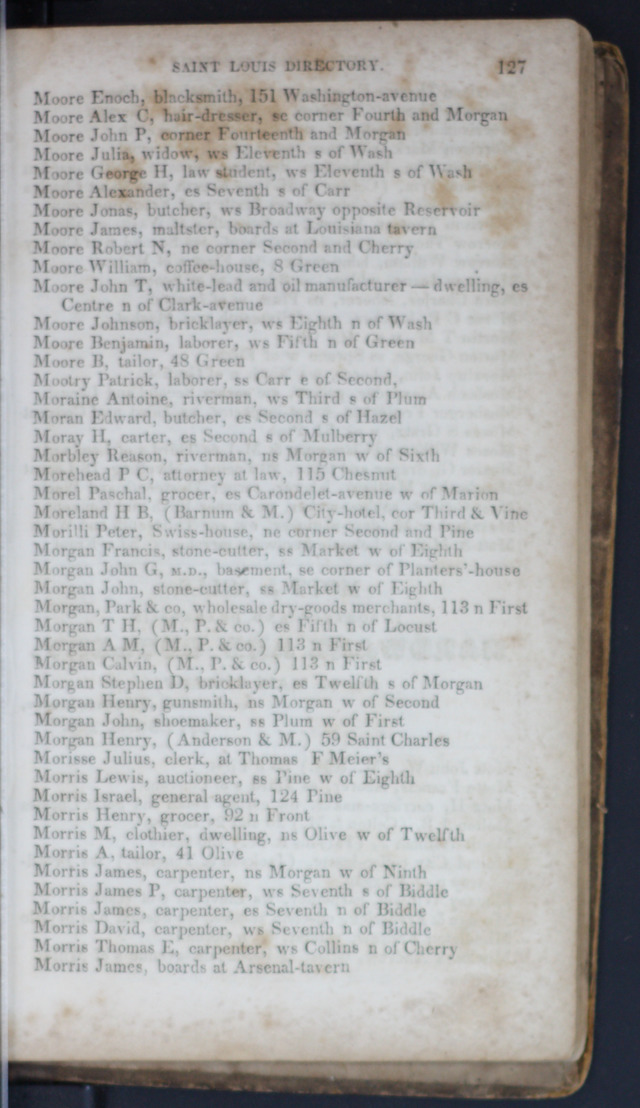 SAINT LOUIS DIRECTORY. 127
Moore Enoch, blacksmith, 151 Washington-avenue
Moore Alex C, hair-dresser, se corner Fourth and Morgan
Moore John P, corner Fourteenth and Morgan
Moore Julia, widow, ws Eleventh s of Wash
Moore George H, law student, ws Eleventh s of Wash
Moore Alexander, es Seventh s of Carr
Moore Jonas, butcher, ws Broadway opposite Reservoir
Moore James, maltster, boards at Louisiana tavern
Moore Robert N, ne corner Second and Cherry
Moore William, coffee-house, 8 Green
Moore John T, white-lead and oil manufacturer — dwelling, es
Centre n of Clark-avenue
Moore Johnson, bricklayer, ws Eighth n of Wash
Moore Benjamin, laborer, ws Fifth n of Green
Moore B, tailor, 48 Green
Mootry Patrick, laborer, ss Carr e of Second,
Moraine Antoine, riverman, ws Third s of Plum
Moran Edward, butcher, es Second s of Hazel
Moray H, carter, es Second s of Mulberry
Morbley Reason, riverman, ns Morgan w of Sixth
Morehead P C, attorney at law, 115 Chesnut
Morel Paschal, grocer, es Carondelet-avenue w of Marion
Moreland H B, (Barnum & M.) City-hotel, cor Third & Vine
Morilli Peter, Swiss-house, ne corner Second and Pine
Morgan Francis, stone-cutter, ss Market w of Eighth
Morgan John G, M.D., basement, se corner of Planters'-house
Morgan John, stone-cutter, ss Market w of Eighth
Morgan, Park & co, wholesale dry-goods merchants, 113 n First
Morgan T H, (M., P. & co.) es Fifth n of Locust
Morgan A M, (M., P. & co.) 113 n First
Morgan Calvin, (M., P. & co.) 113 n First
Morgan Stephen D, bricklayer, es Twelfth s of Morgan
Morgan Henry, gunsmith, ns Morgan w of Second
Morgan John, shoemaker, ss Plum w of First
Morgan Henry, (Anderson & M.) 59 Saint Charles
Morisse Julius, clerk, at Thomas F Meier's
Morris Lewis, auctioneer, ss Pine w of Eighth
Morris Israel, general agent, 124 Pine
Morris Henry, grocer, 92 n Front
Morris M, clothier, dwelling, ns Olive w of Twelfth
Morris A, tailor, 41 Olive
Morris James, carpenter, ns Morgan w of Ninth
Morris James P, carpenter, ws Seventh s of Biddle
Morris James, carpenter, es Seventh n of Biddle
Morris David, carpenter, ws Seventh n of Biddle
Morris Thomas E, carpenter, ws Collins n of Cherry
Morris James, boards at Arsenal-tavern